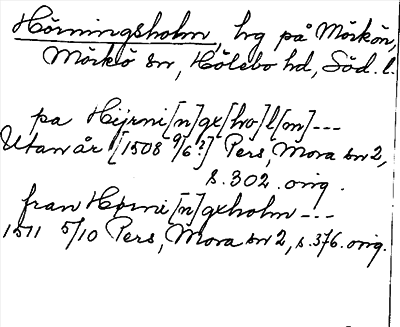 Hörningsholm, hg på Mörkön,
Mörkö sn, Hölebo hd, Söd. l.
pa Hijrni[n]gx[ho]l[m]---
Utan år [1508 9/6?] Pers, Mora sn 2,
s. 302. orig.
fran Hørni[n]gxholm ---
1511 5/10 Pers, Mora sn 2, s. 376. orig.